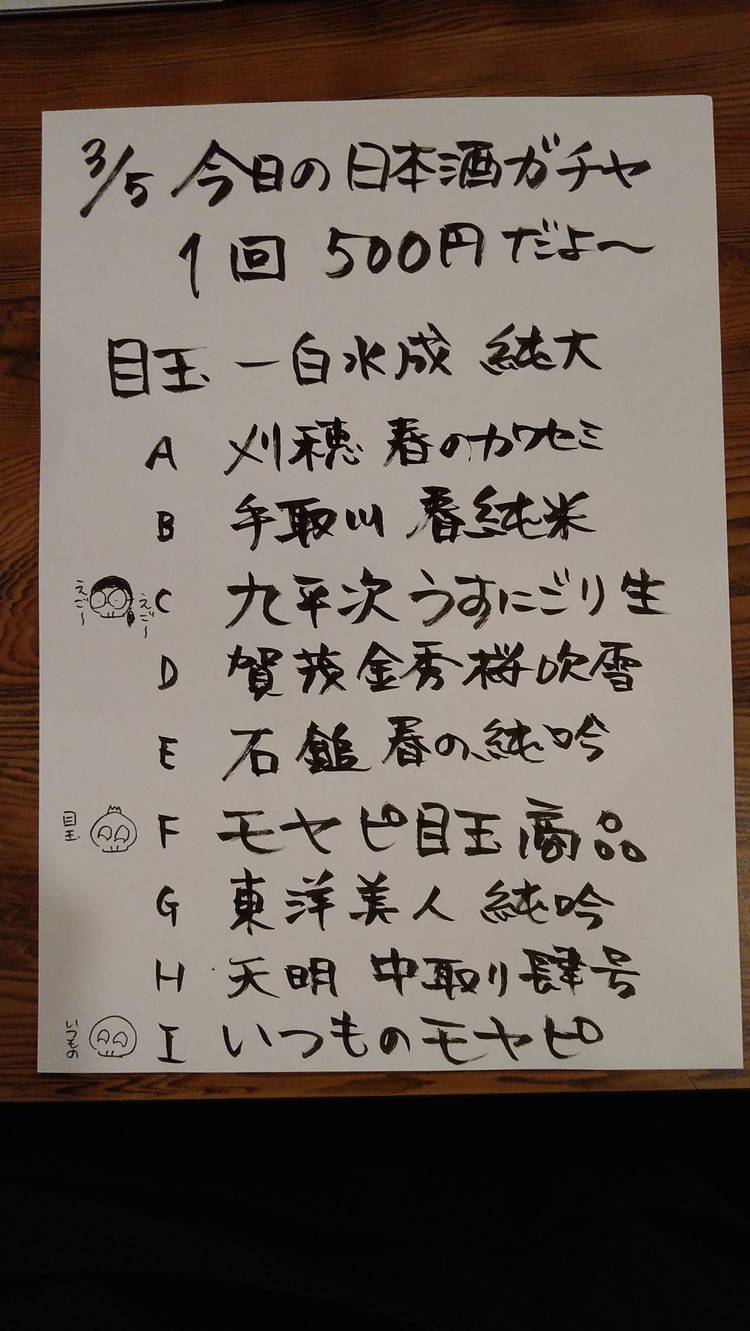 3/5 今日の日本酒ガチャ
1回 500円だよ〜
目玉 一白水成 純大
A 刈穂 春のカワセミ
B 手取川 春純米
えご〜 えご〜 C 九平次 うすにごり生
D 賀茂金秀桜吹雪
E 石鎚 春の純吟
目玉 F モヤピ目玉商品
G 東洋美人 純吟
H 天明 中取り肆号
いつもの I いつものモヤピ